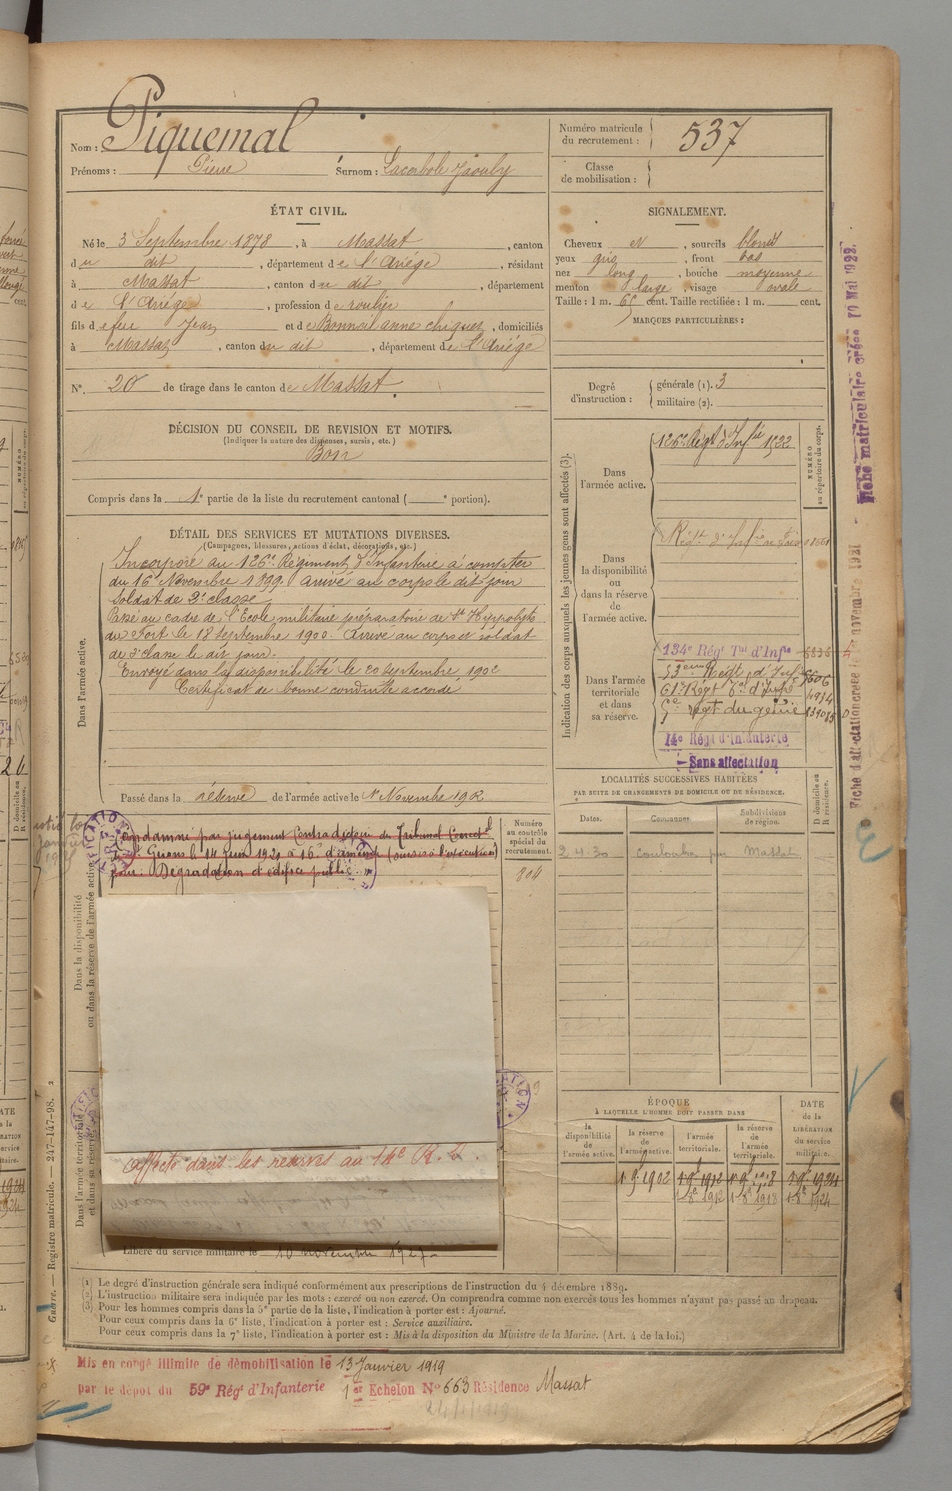 Nom : Piquemal
Prénoms : Pierre Surnom :
Numéro matricule du recrutement : 537
Classe de mobilisation :
ÉTAT CIVIL.
Né le 3 Septembre 1878, à Massat, canton
du dit, département de l'Ariége, résidant
à Massat, canton du dit, département
de l'Ariége, profession de roulier
fils de feu Jean et de anne, domiciliés
à Massat, canton du dit, département de l'Ariége
N° 20 de tirage dans le canton de Massat.
SIGNALEMENT.
Cheveux N, sourcils blond
yeux gris, front bas
nez long, bouche moyenne
menton large, visage ovale
Taille : 1 m. 65 cent. Taille rectifiée : 1 m. cent.
MARQUES PARTICULIÈRES :
Degré d'instruction : générale (1). 3
militaire (2).
DÉCISION DU CONSEIL DE REVISION ET MOTIFS.
(Indiquer la nature des dispenses, sursis, etc.)
Bon
Compris dans la 1e partie de la liste du recrutement cantonal ( e portion).
DÉTAIL DES SERVICES ET MUTATIONS DIVERSES.
(Campagnes, blessures, actions d'éclat, décorations, etc.)
Dans l'armée active.
Incorporé au 126e Régiment d'Infanterie à compter
du 16 Novembre 1899. arrivé au corps le dit jour
soldat de 2e classe
Passé au cadre de l'Ecole militaire préparatoire de St Hippolyte
du Fort le 18 septembre 1900. Arrivé au corps et soldat
de 2e classe le dit jour.
Envoyé dans la disponibilité le 20 septembre 1902
Certificat de bonne conduite accordé
Passé dans la réserve de l'armée active le 1r Novembre 1902
Dans la disponibilité ou dans la réserve de l'armée active
Condamné par jugement Contradictoire du Tribunal Correctel
de St Girons le 14 juin 1921 à 16f d'amende (sursis à l'exécution)
pour: Dégradation d'édifice public.
Numéro au contrôle spécial du recrutement.
804
Dans l'armée territoriale et dans sa réserve
affecté dans les réserves au 14e R. I.
Libéré du service militaire le 10 novembre 1927
Indication des corps auxquels les jeunes gens sont affectés (3).
NUMÉRO au répertoire du corps.
Dans l'armée active.
126e Régt d'Infrie
Dans la disponibilité ou dans la réserve de l'armée active.
Régt d'Infrie
Dans l'armée territoriale et dans sa réserve.
134e Régt Tal d'Infie
53eme Régt d'Inf.
61e Régt Tal d'Infie
Régt du génie
14e Régt d'Infanterie
Sans affectation
LOCALITÉS SUCCESSIVES HABITÉES
PAR SUITE DE CHANGEMENTS DE DOMICILE OU DE RÉSIDENCE.
Dates. Communes. Subdivisions de région. D domicile ou R résidence.
2 4 30 par Massat
ÉPOQUE
À LAQUELLE L'HOMME DOIT PASSER DANS
la disponibilité de l'armée active. la réserve de l'armée active. l'armée territoriale. la réserve de l'armée territoriale. DATE de la LIBÉRATION du service militaire.
1 9bre 1902 1 9bre 1912 1 9bre 1918 1 9bre 1924
1 8bre 1912 1 8bre 1918 1 8bre 1924
(1) Le degré d'instruction générale sera indiqué conformément aux prescriptions de l'instruction du 4 décembre 1889.
(2) L'instruction militaire sera indiquée par les mots : exercé ou non exercé. On comprendra comme non exercés tous les hommes n'ayant pas passé au drapeau.
(3) Pour les hommes compris dans la 5e partie de la liste, l'indication à porter est : Ajourné.
Pour ceux compris dans la 6e liste, l'indication à porter est : Service auxiliaire.
Pour ceux compris dans la 7e liste, l'indication à porter est : Mis à la disposition du Ministre de la Marine. (Art. 4 de la loi.)
Mis en congé illimité de démobilisation le 13 Janvier 1919
par le dépôt du 59e Régt d'Infanterie 1er Echelon No 663 Résidence Massat
Guerre. — Registre matricule. — 247-147-98. 2
Fiche matriculaire créée 10 Mai 1922.
Fiche d'affectation créée le novembre 1921